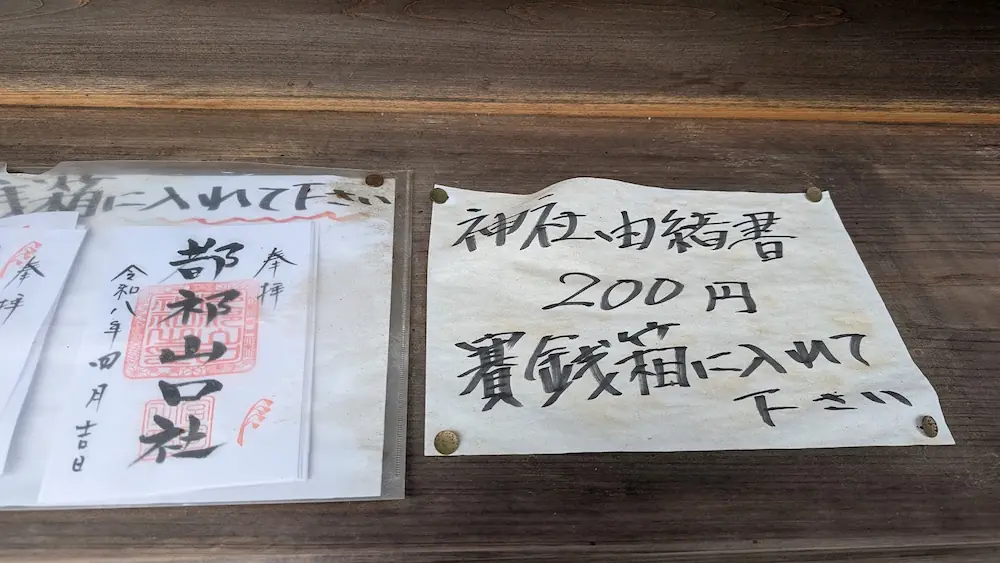 銭箱に入れて下さい
奉拝
奉拝
都祁山口社
令和八年四月吉日
神社由緒書
200円
賽銭箱に入れて
下さい